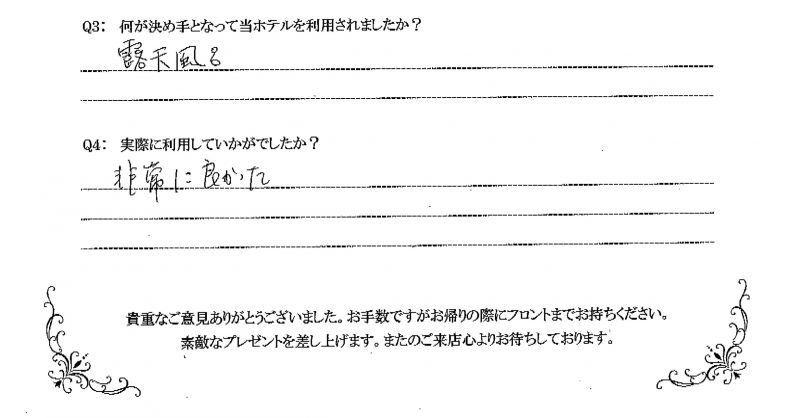 Q3: 何が決め手となって当ホテルを利用されましたか?
露天風呂
Q4: 実際に利用していかがでしたか?
非常に良かった
貴重なご意見ありがとうございました。お手数ですがお帰りの際にフロントまでお持ちください。
素敵なプレゼントを差し上げます。またのご来店心よりお待ちしております。